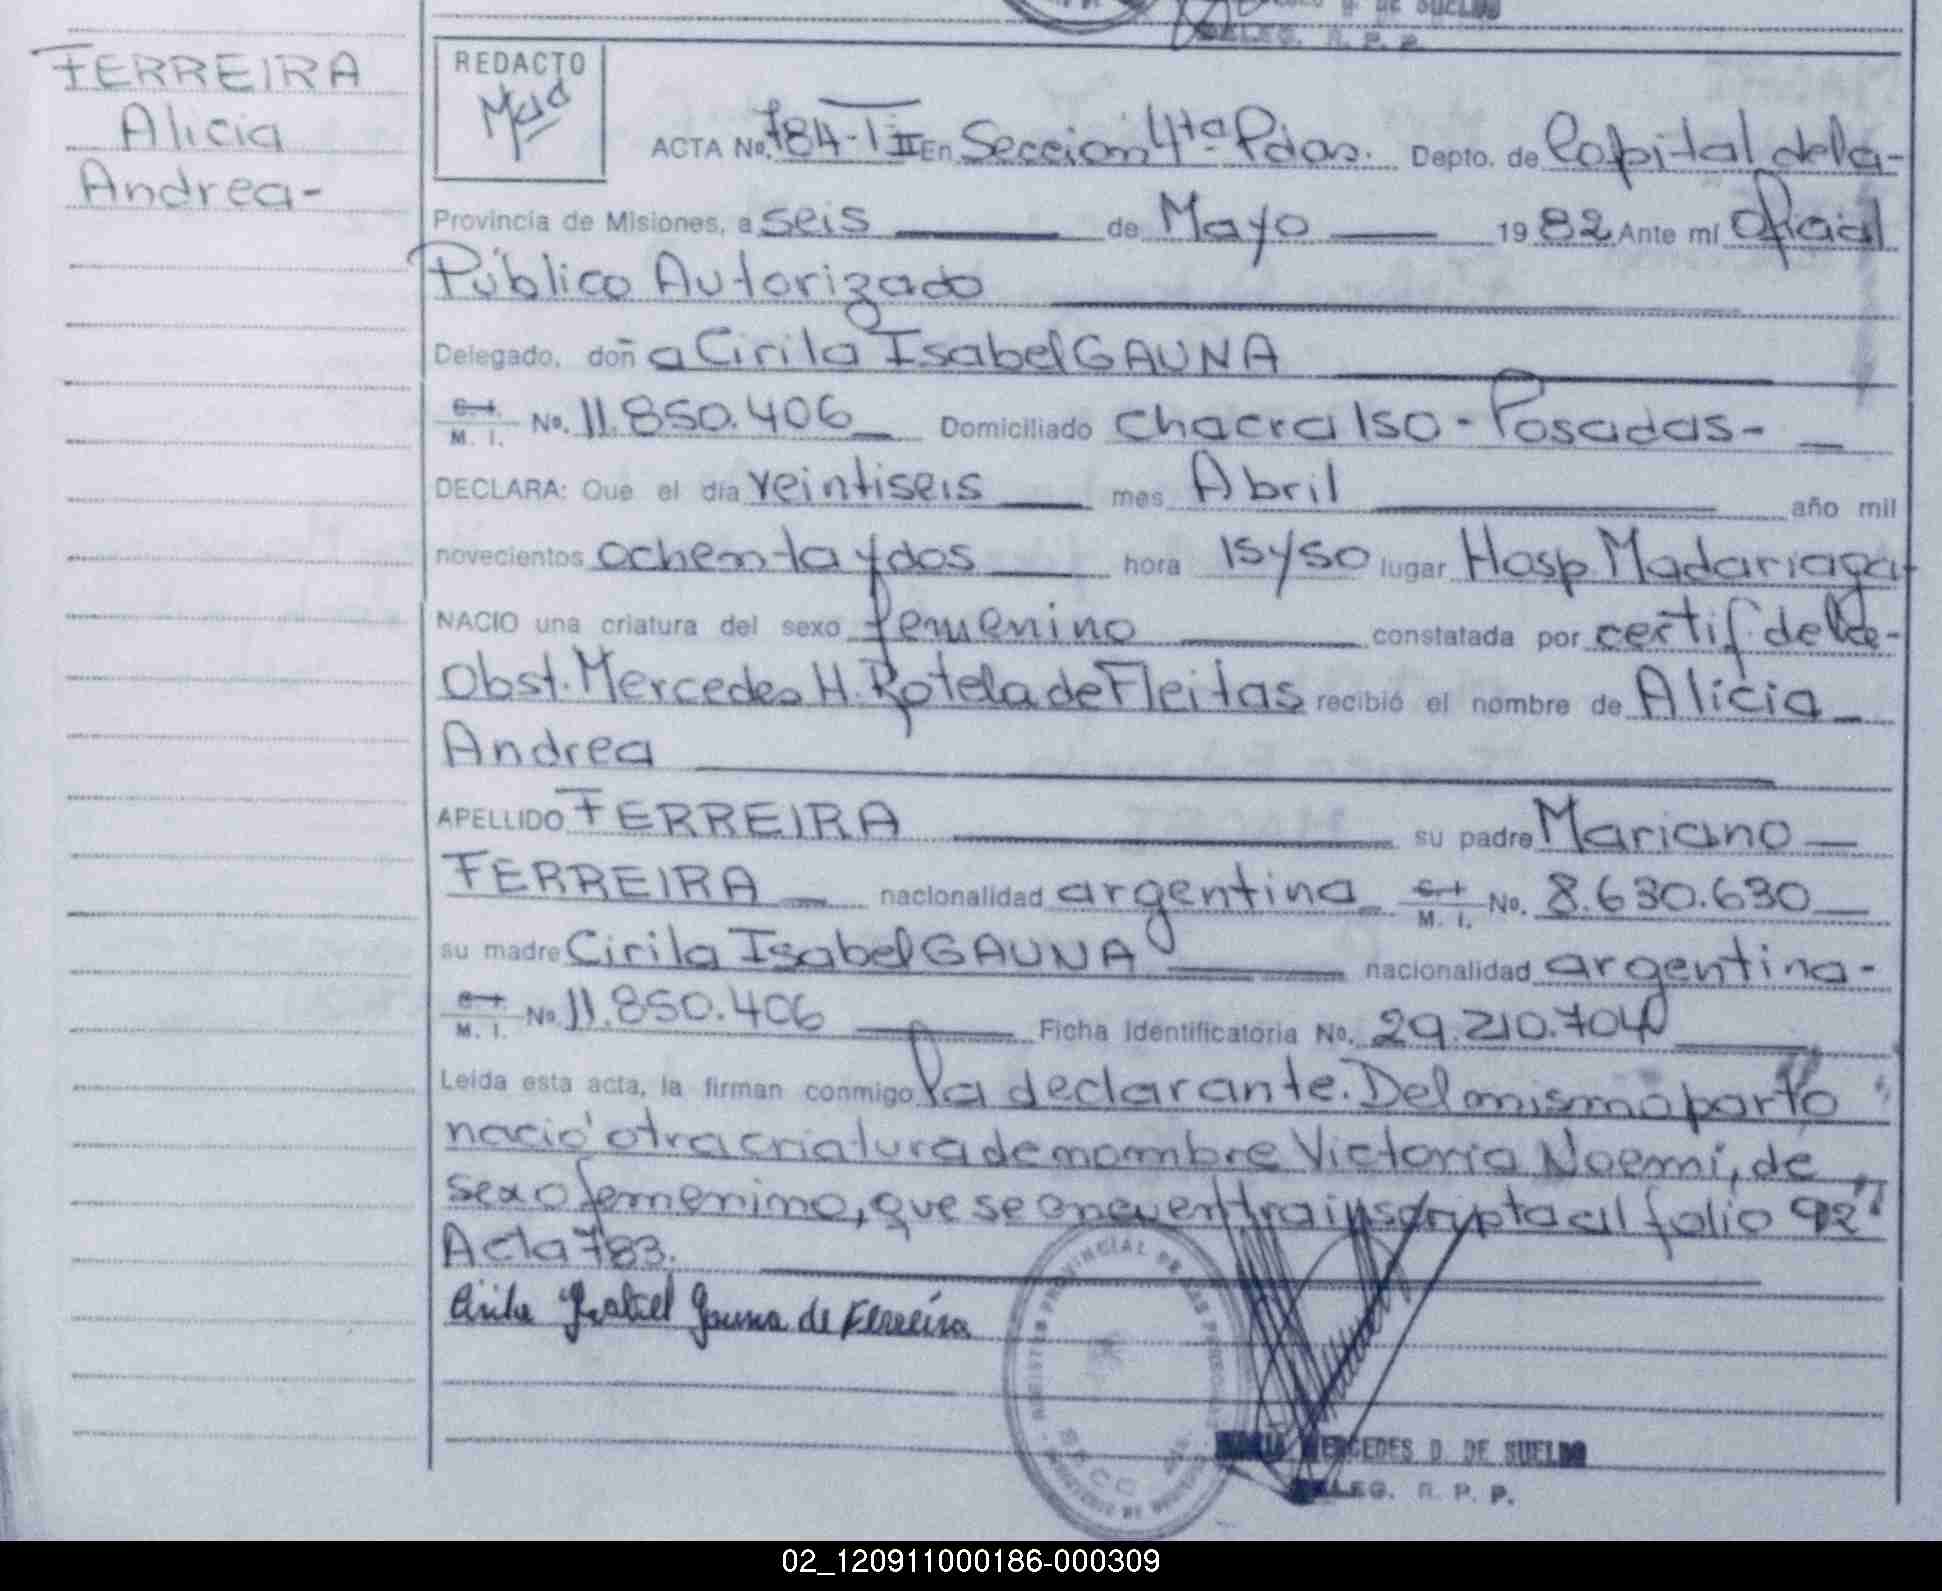 D. DE SUELDO
DELEG. R. P. P.
FERREIRA
Alicia
Andrea-
REDACTO
ACTA No. 784-T II En Sección 4ta Pdas. Depto. de Capital de la-
Provincia de Misiones, a seis de Mayo 1982 Ante mí Oficial
Público Autorizado
Delegado, doña Cirila Isabel GAUNA
C.I. M. I. No. 11.850.406 Domiciliado Chacra 150 - Posadas-
DECLARA: Que el día veintiseis mes Abril año mil
novecientos ochenta y dos hora 15y50 lugar Hosp. Madariaga
NACIO una criatura del sexo femenino constatada por certif. de la-
Obst. Mercedes H. Rotela de Fleitas recibió el nombre de Alicia
Andrea
APELLIDO FERREIRA su padre Mariano
FERREIRA nacionalidad argentina C.I. M. I. No. 8.630.630
su madre Cirila Isabel GAUNA nacionalidad argentina-
C.I. M. I. No. 11.850.406 Ficha Identificatoria No. 29.210.704
Leída esta acta, la firman conmigo la declarante. Del mismo parto
nació otra criatura de nombre Victoria Noemí, de
sexo femenino, que se encuentra inscripta al folio 92"
Acta 783.
Cirila Ysabel Gauna de Ferreira
REGISTRO PROVINCIAL DE LAS PERSONAS
MARIA MERCEDES D. DE SUELDO
DELEG. R. P. P.
02_120911000186-000309